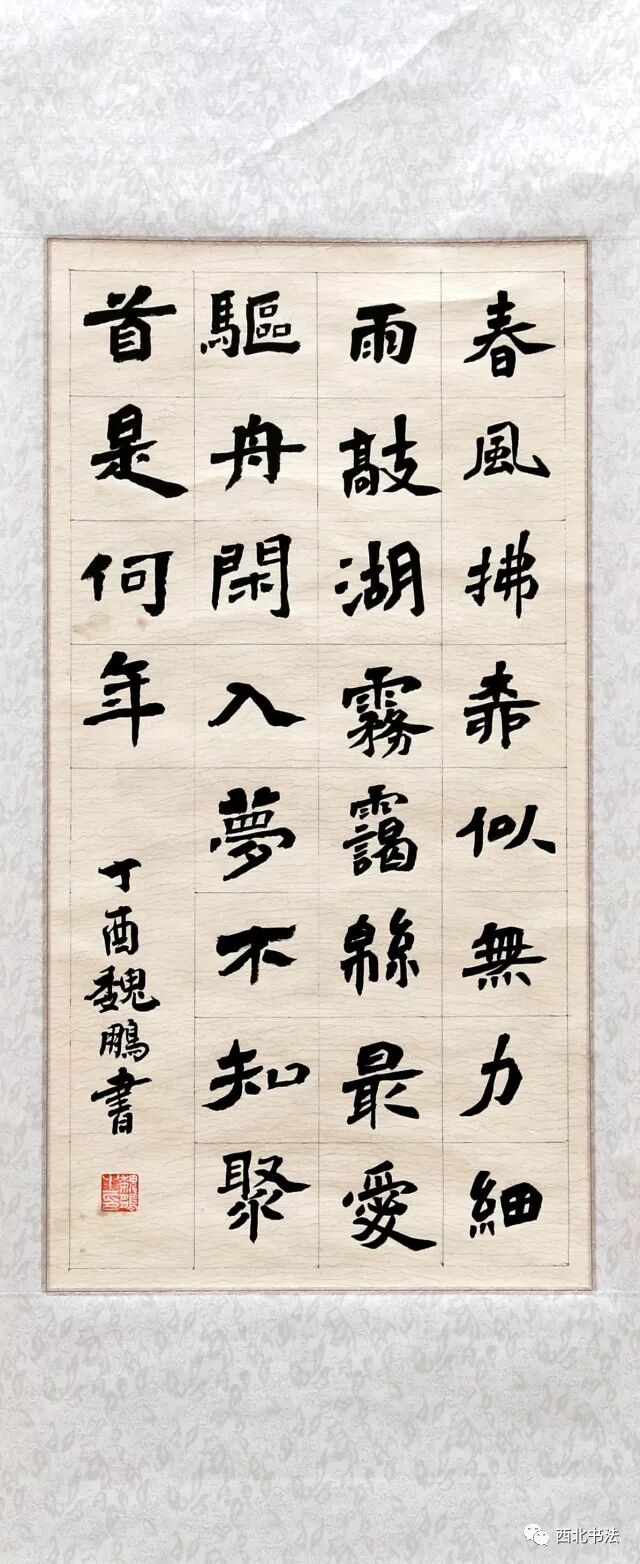 春風拂似無力細
雨敲湖霧靄緜最愛
驅舟閑入夢不知聚
首是何年
丁酉魏鵬書
西北书法